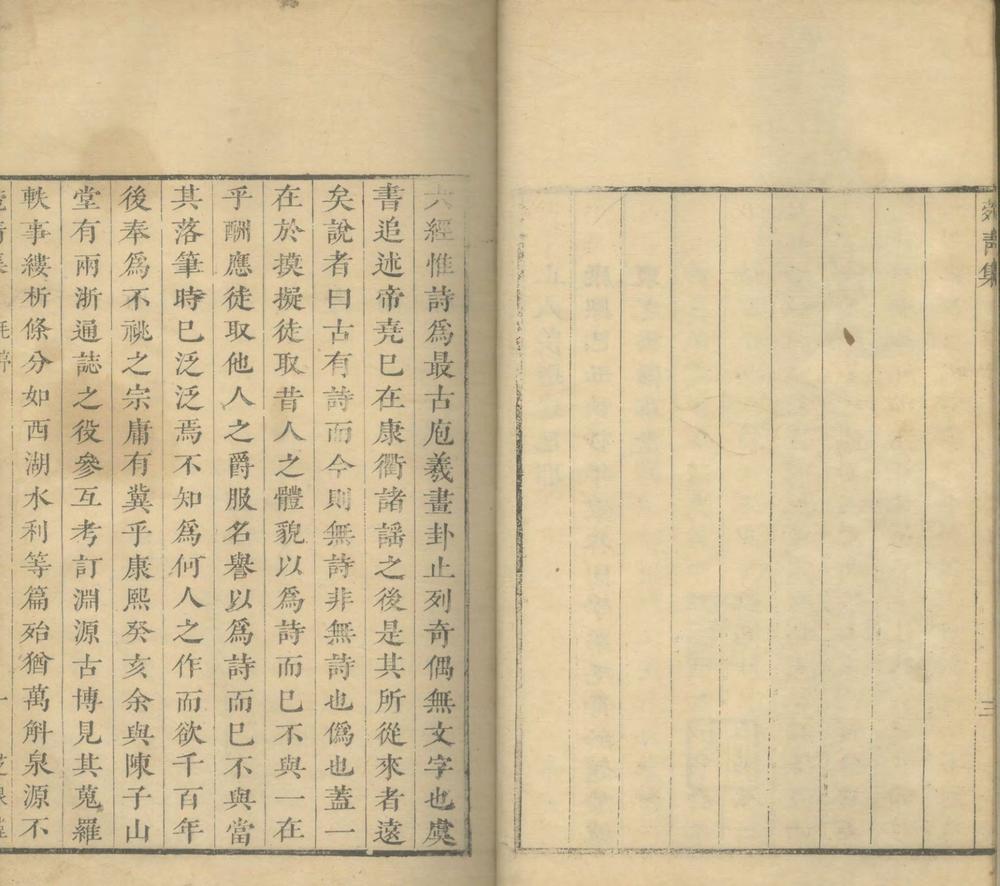 青集
三
六經惟詩爲最古庖羲畫卦止列奇偶無文字也虞
書追述帝堯巳在康衢諸謡之後是其所從來者遠
矣說者曰古有詩而今則無詩非無詩也僞也蓋一
在於摸擬徒取昔人之體貌以爲詩而巳不與一在
乎酬應徒取他人之爵服名譽以爲詩而巳不與當
其落筆時巳泛泛焉不知爲何人之作而欲千百年
後奉爲不祧之宗庸有冀乎康熙癸亥余與陳子山
堂有兩浙通誌之役參互考訂淵源古博見其蒐羅
軼事縷析條分如西湖水利等篇殆猶萬斛泉源不